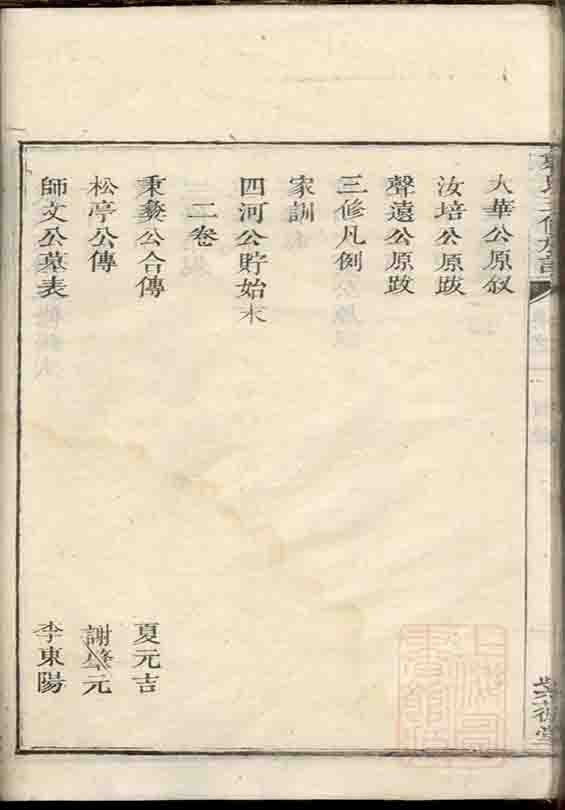 大華公原叙
汝培公原跋
聲遠公原跋
三修凡例
家訓
四河公貯始末
二卷
秉彜公合傳 夏元吉
松亭公傳 謝 元
師文公墓表 李東陽
上海圖書館藏